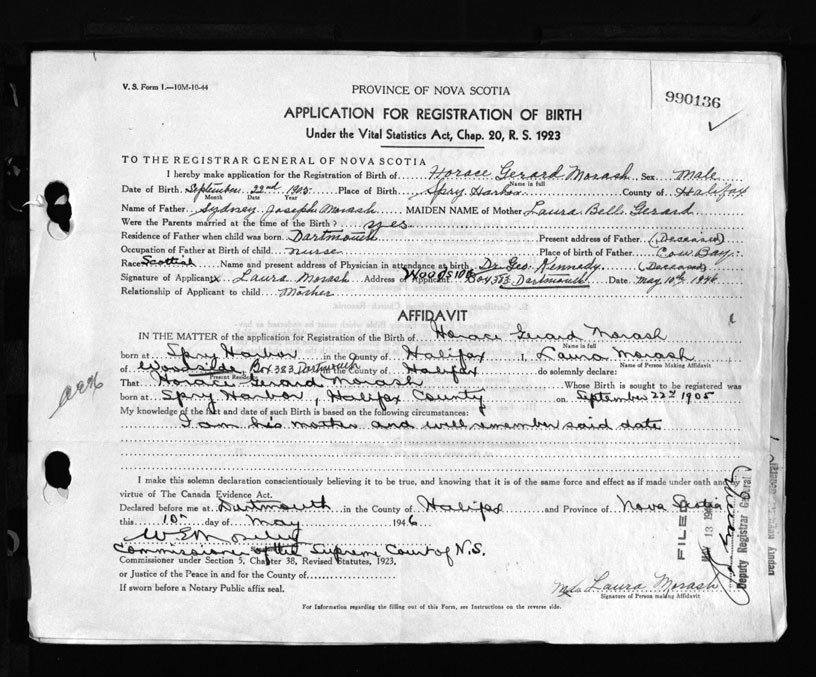 V. S. Form 1.—10M-10-44
PROVINCE OF NOVA SCOTIA
990136
APPLICATION FOR REGISTRATION OF BIRTH
Under the Vital Statistics Act, Chap. 20, R. S. 1923
TO THE REGISTRAR GENERAL OF NOVA SCOTIA
I hereby make application for the Registration of Birth of Horace Gerard Morash Sex Male
Name in full
Date of Birth September 22nd 1905 Place of Birth Spry Harbor County of Halifax
Month Date Year
Name of Father Sydney Joseph Morash MAIDEN NAME of Mother Laura Bell Gerard
Were the Parents married at the time of the Birth? yes
Residence of Father when child was born Dartmouth Present address of Father (Deceased)
Occupation of Father at Birth of child nurse Place of birth of Father Cow Bay
Race Scottish Name and present address of Physician in attendance at birth Dr. Geo. Kennady (Deceased)
Signature of Applicant x Laura Morash Address of Applicant Woodside Box 383 Dartmouth Date May 10th 1946
Relationship of Applicant to child Mother
AFFIDAVIT
IN THE MATTER of the application for Registration of the Birth of Horace Gerard Morash
Name in full
born at Spry Harbor in the County of Halifax I, Laura Morash
Name of Person Making Affidavit
of Woodside, Box 383 Dartmouth in the County of Halifax do solemnly declare:
Present Residence
That Horace Gerard Morash Whose Birth is sought to be registered was
born at Spry Harbor, Halifax County on September 22nd 1905
My knowledge of the fact and date of such Birth is based on the following circumstances:
I am his mother and will remember said date
I make this solemn declaration conscientiously believing it to be true, and knowing that it is of the same force and effect as if made under oath and
virtue of The Canada Evidence Act.
Declared before me at Dartmouth in the County of Halifax and Province of Nova Scotia
this 10th day of May 1946
Commissioner of the Supreme Court of N.S.
Commissioner under Section 5, Chapter 38, Revised Statutes, 1923,
or Justice of the Peace in and for the County of
If sworn before a Notary Public affix seal.
Mrs Laura Morash
Signature of Person making Affidavit
For Information regarding the filling out of this Form, see Instructions on the reverse side.
FILED
Deputy Registrar General